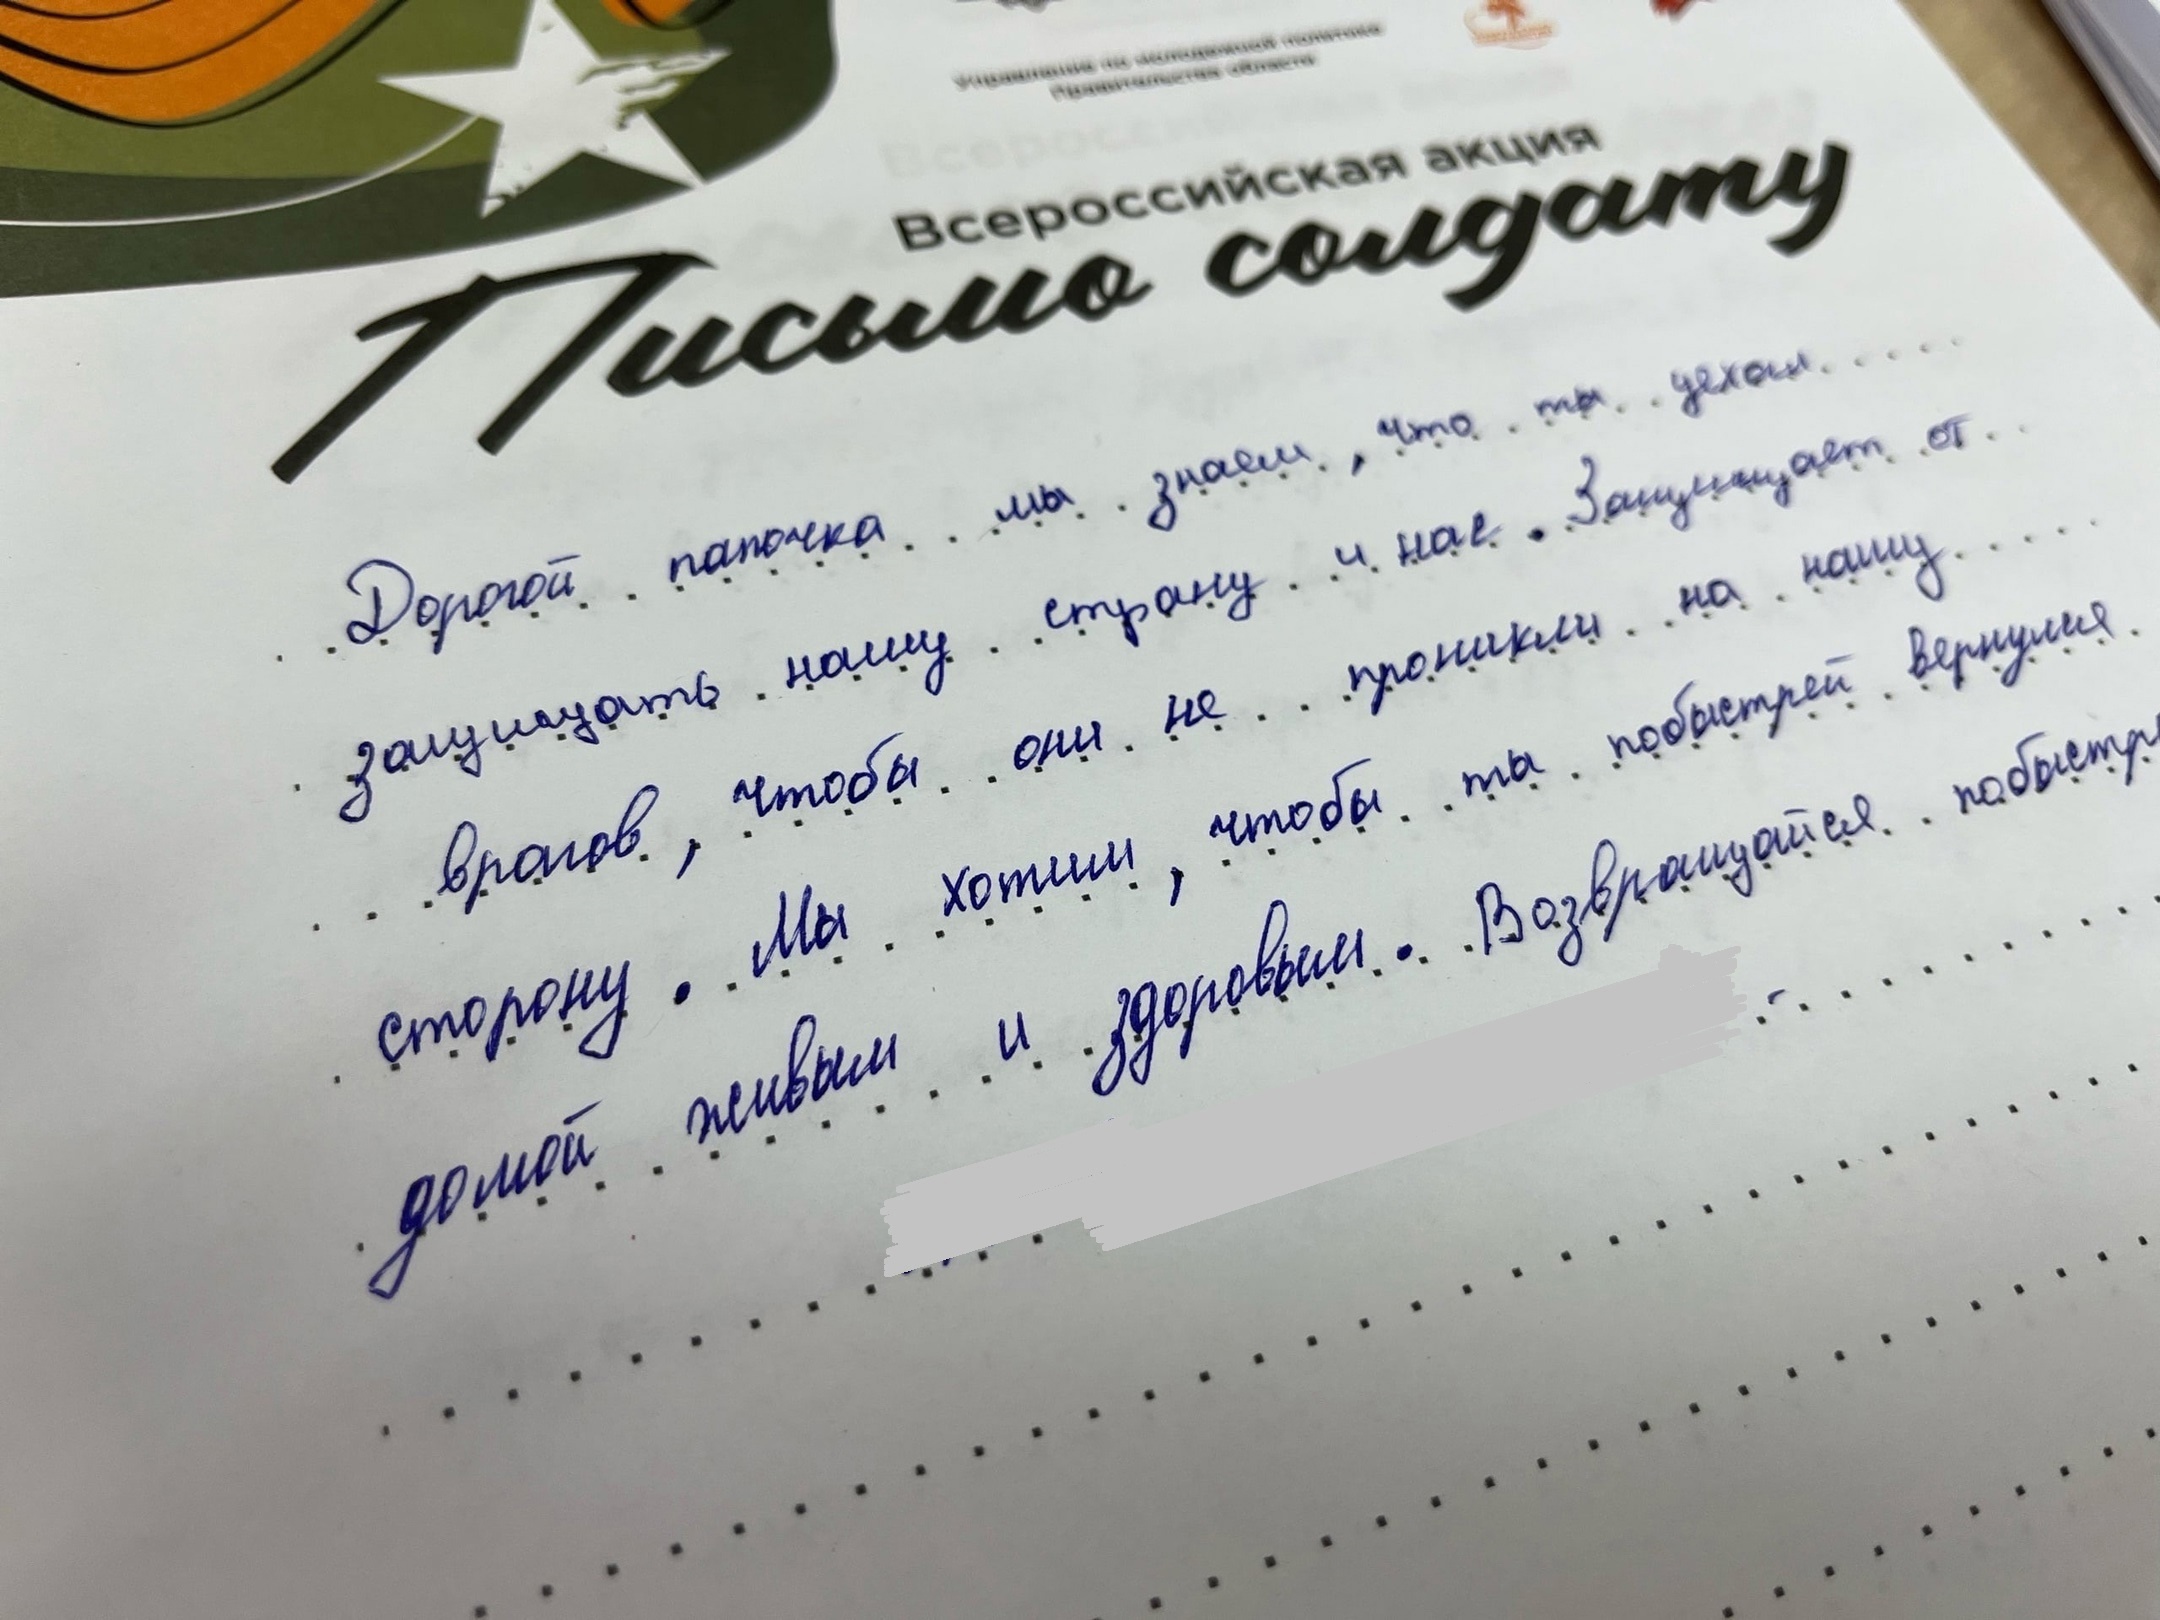 Управление по молодежной политике
Правительства области
Всероссийская акция
Письмо солдату
Дорогой папочка мы знаем, что ты уехал
защищать нашу страну и нас. Защищает от
врагов, чтобы они не проникли на нашу
сторону. Мы хотим, чтобы ты побыстрей вернулся
домой живым и здоровым. Возвращайся